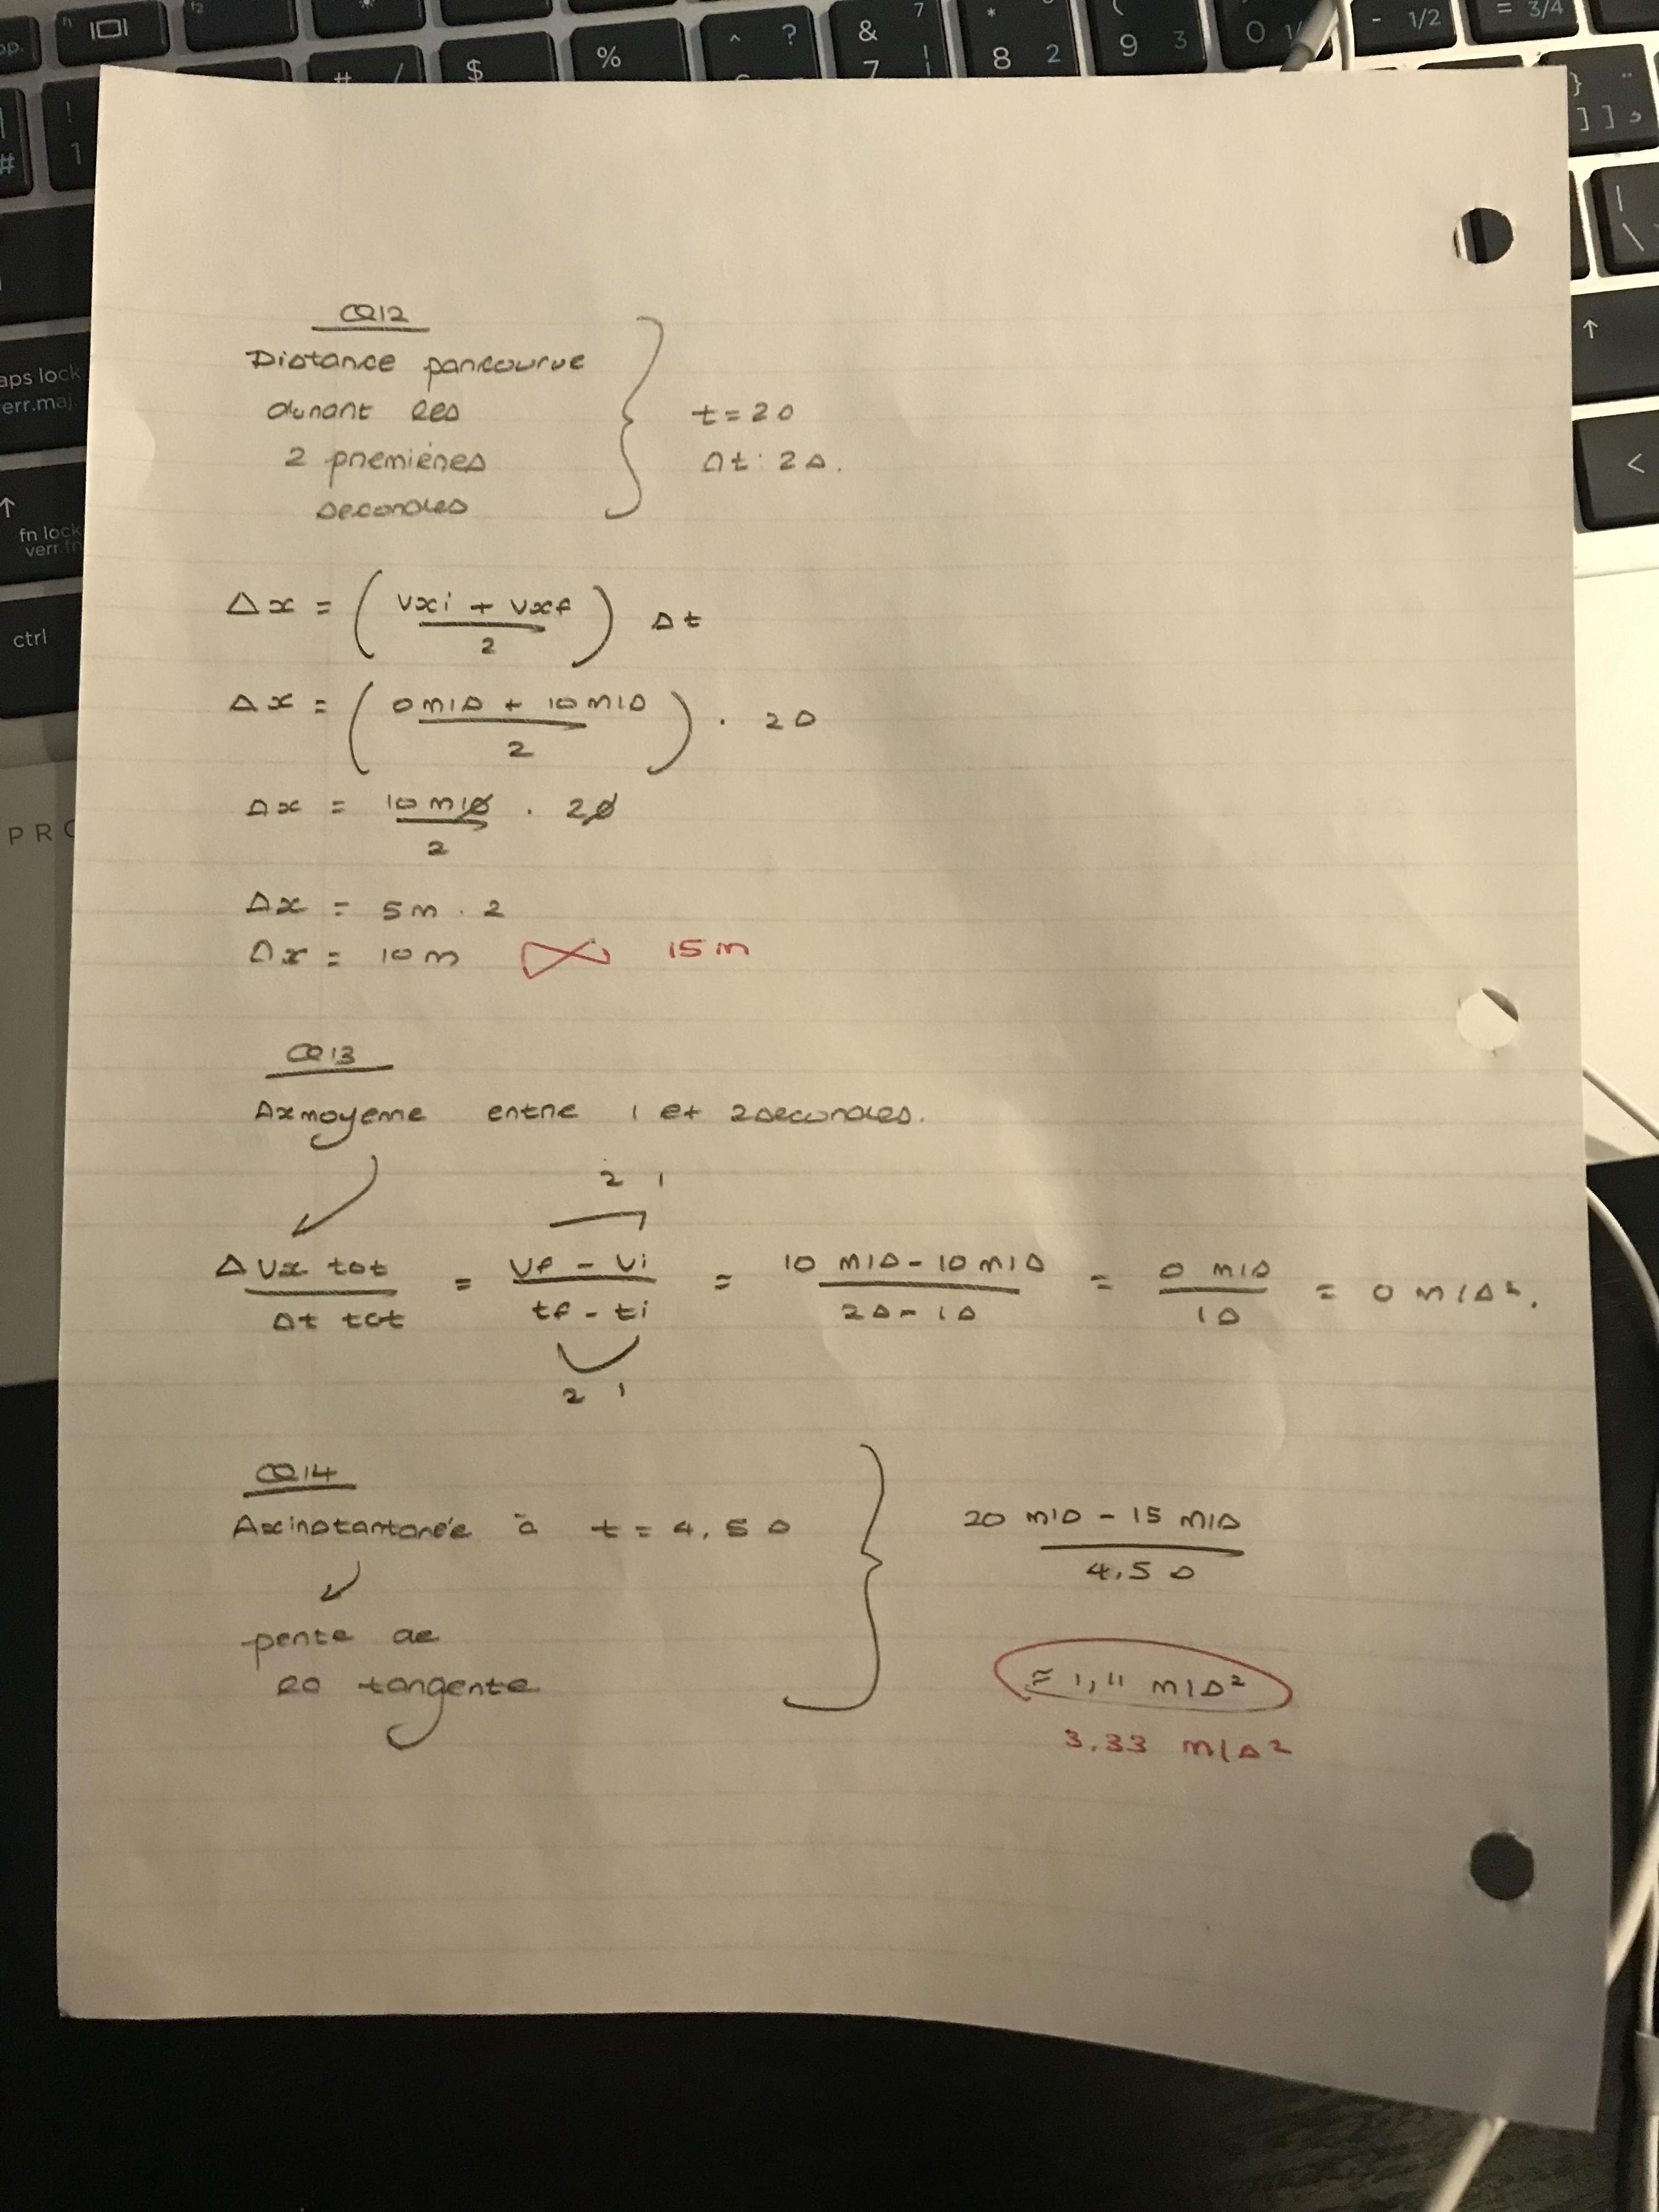 CQ12
Distance parcourue
durant les
2 premières
secondes
t = 2 s
Δt: 2 s.
Δx = ( vxi + vxf / 2 ) Δt
Δx = ( 0 m/s + 10 m/s / 2 ) · 2 s
Δx = 10 m/s / 2 · 2 s
Δx = 5 m · 2
Δx = 10 m 15 m
CQ13
Axmoyenne entre 1 et 2 secondes.
2 1
ΔVx tot / Δt tot = Vf - Vi / tf - ti = 10 m/s - 10 m/s / 2s - 1s = 0 m/s / 1s = 0 m/s².
2 1
CQ14
Axinstantanée à t = 4,5 s
pente de
la tangente
20 m/s - 15 m/s
4,5 s
≈ 1,11 m/s²
3.33 m/s²